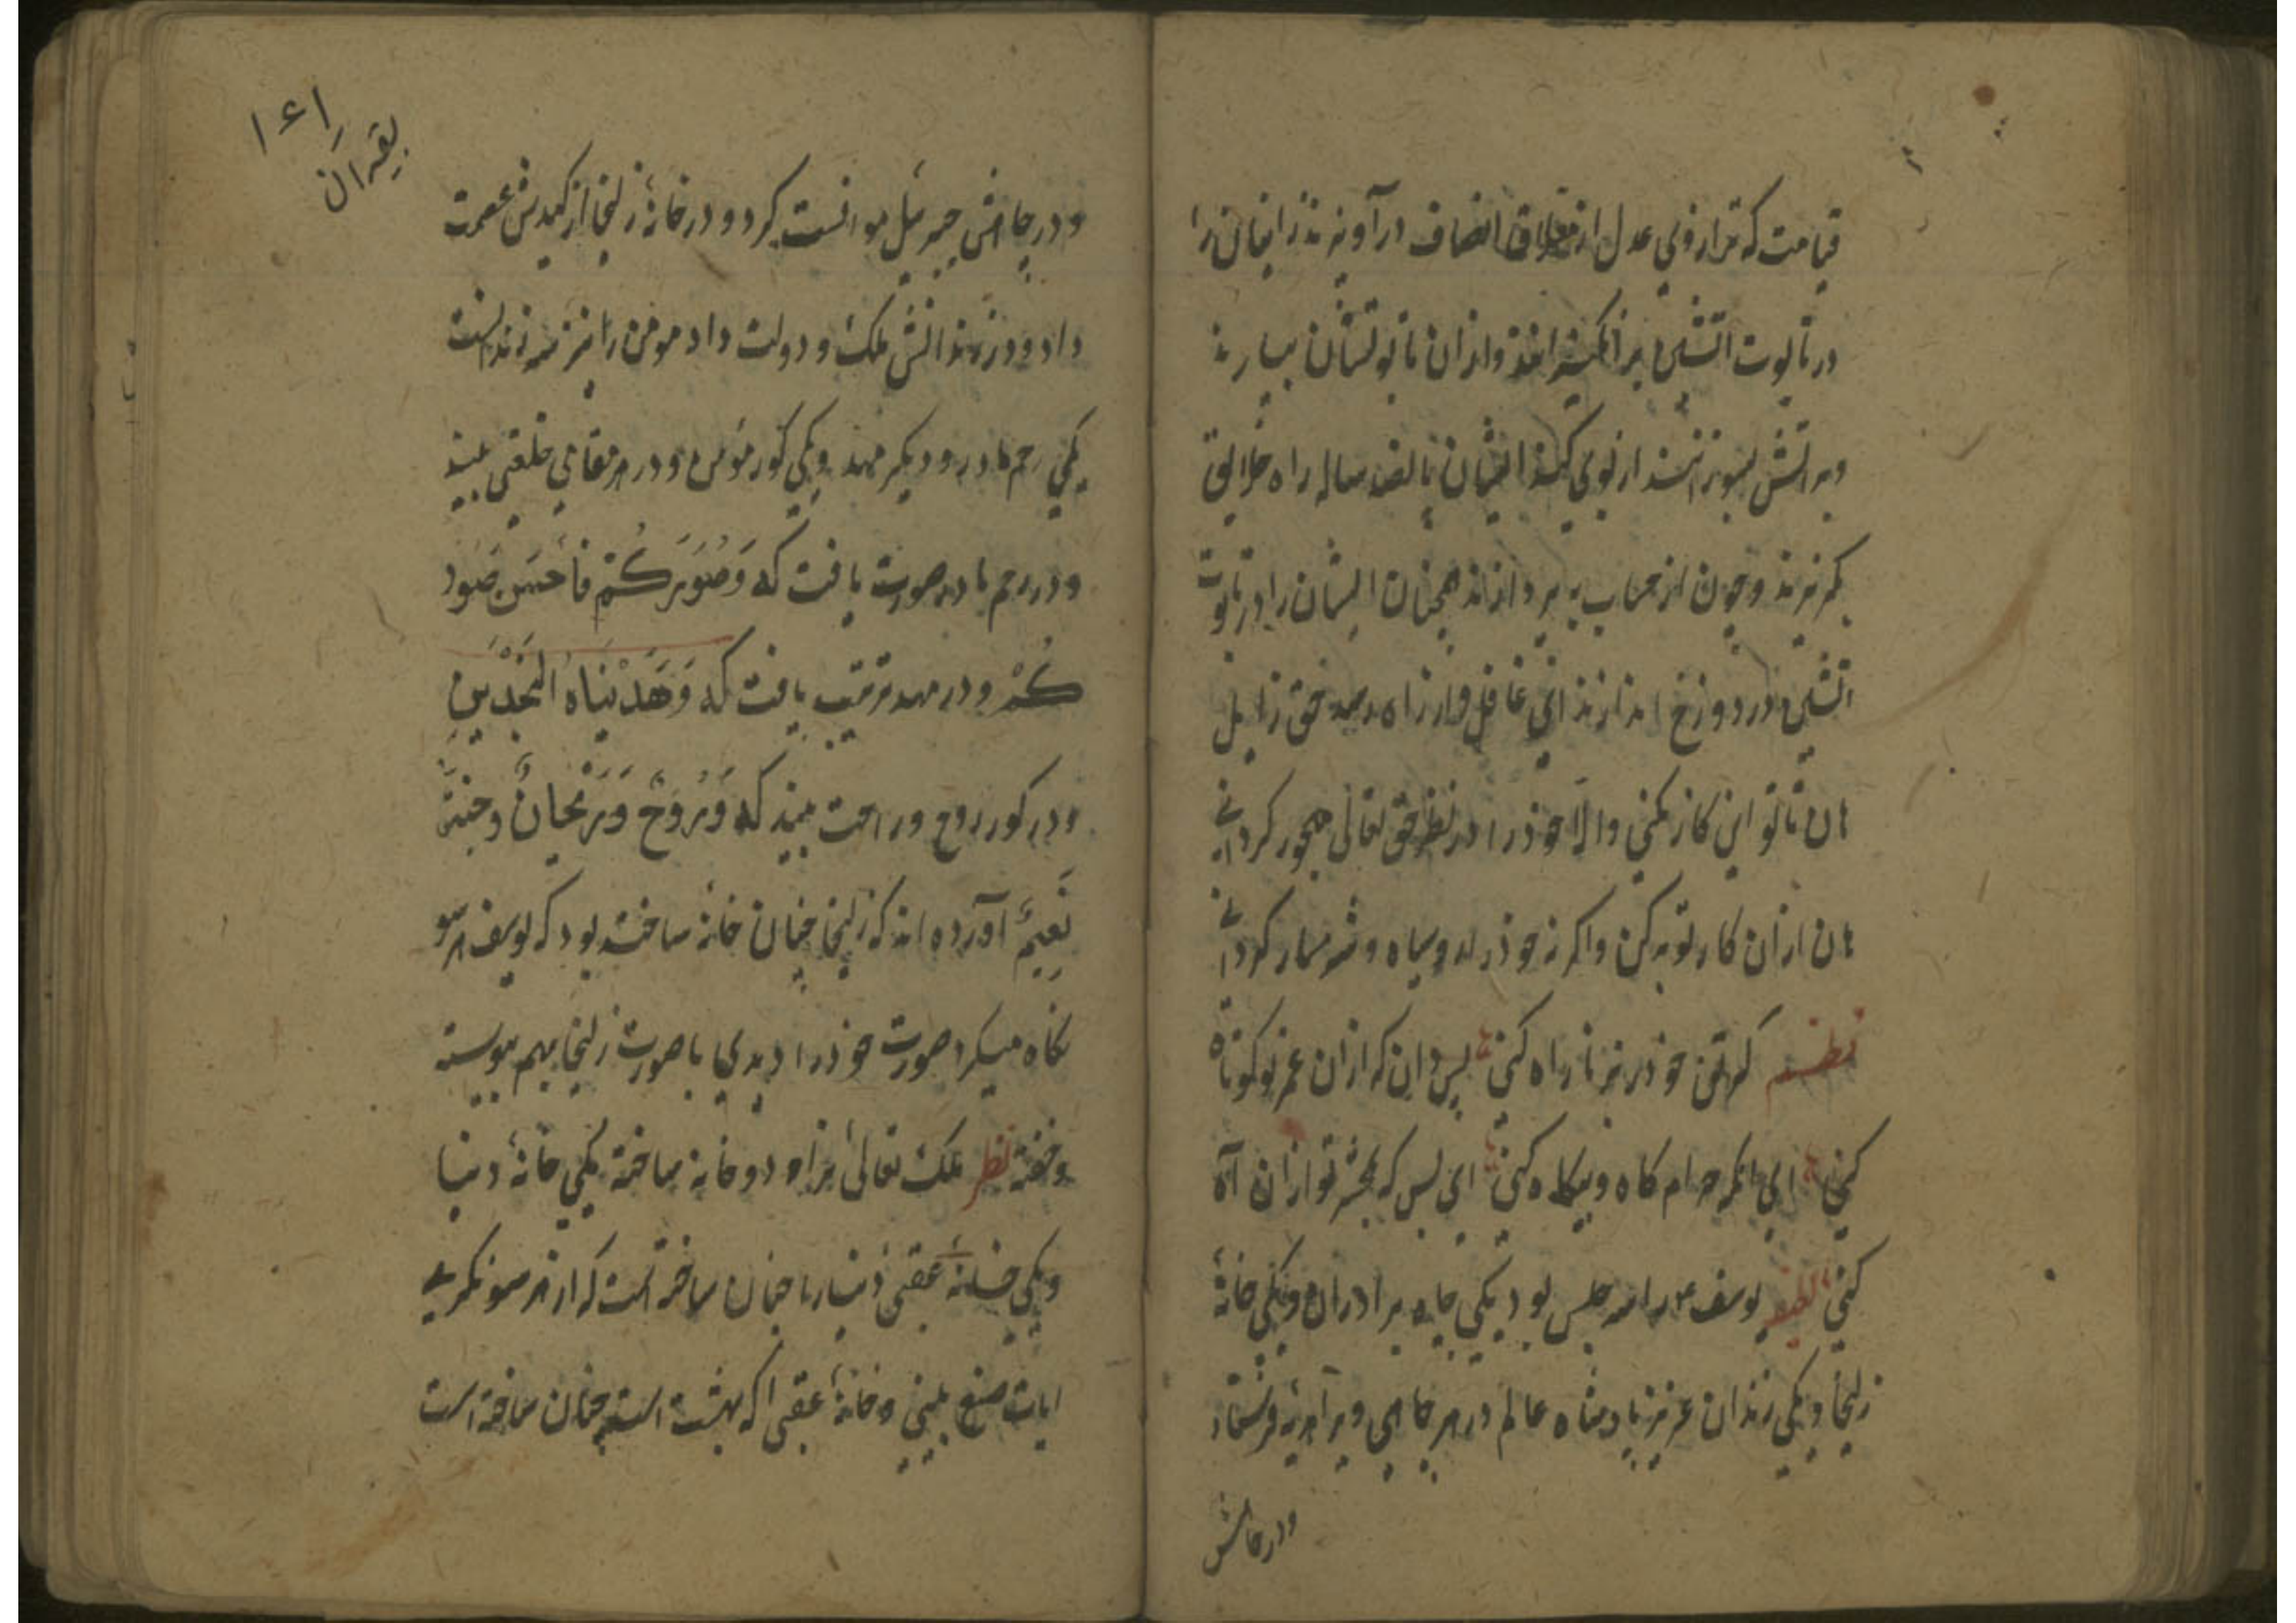 قیامت که ترازوی عدل از معلاق انصاف درآویزند زانیان را
در تابوت اتشین برانکیزانند وازان تابوتشان بیارند
وبر اتش بسوزانند از بوی کند ایشان پانصد ساله راه خلایق
بکریزند وچون از حساب بپردازند همچنان ایشان را در تابوت
اتشین در دوزخ اندازند ای غافل وار زاه حق زایل
هان تا تو این کار نکنی والا خود را در نظر حق تعالی مهجور کردانی
هان ازان کار توبه کن واکر نه خود را روسیاه وشرمسار کردانی
نظم کر تن خود بر زنا راه کنی پس دان که ازان عمر تو کوتاه
کنی ای انکه حرام کاه وبیکاه کنی ای بس که بحشر تو ازان آه
کنی یوسف را سه حبس بود یکی چاه برادران ویکی خانهٔ
زلیخا ویکی زندان عزیز پادشاه عالم در هر جاهی ویرا فرستاد
ودر چاهش
۱۶۱
بقیه ان
ودر چاهش جبرئیل موانست کرد ودر خانهٔ زلیخا از کیدش عصمت
داد ودر زندانش ملک ودولت داد مومن را نیز سه زندانست
یکی رحم مادر ودیکر مهد ویکی کور مومن ودر هر مقامی خلعتی بیند
ودر رحم مادر صورت یافت که وَصَوَّرَكُمْ فَاَحْسَنَ صُوَرَ
كُمْ ودر مهد تربیت یافت که وَهَدَیْنَاهُ النَّجْدَیْنِ
ودر کور روح وراحت بیند که فَرَوْحٌ وَرَیْحَانٌ وجنت
نَعِیمٌ آورده اند که زلیخا چنان خانه ساخته بود که یوسف هر سو
نکاه میکرد صورت خود را دیدی با صورت زلیخا بهم پیوسته
وخفته نظر ملک تعالی نیز دو خانه ساخته یکی خانهٔ دنیا
ویکی خانهٔ عقبی دنیا را چنان ساخته است که از هر سو نکری
ایات صنع بینی وخانهٔ عقبی که بهشت است چنان ساخته است